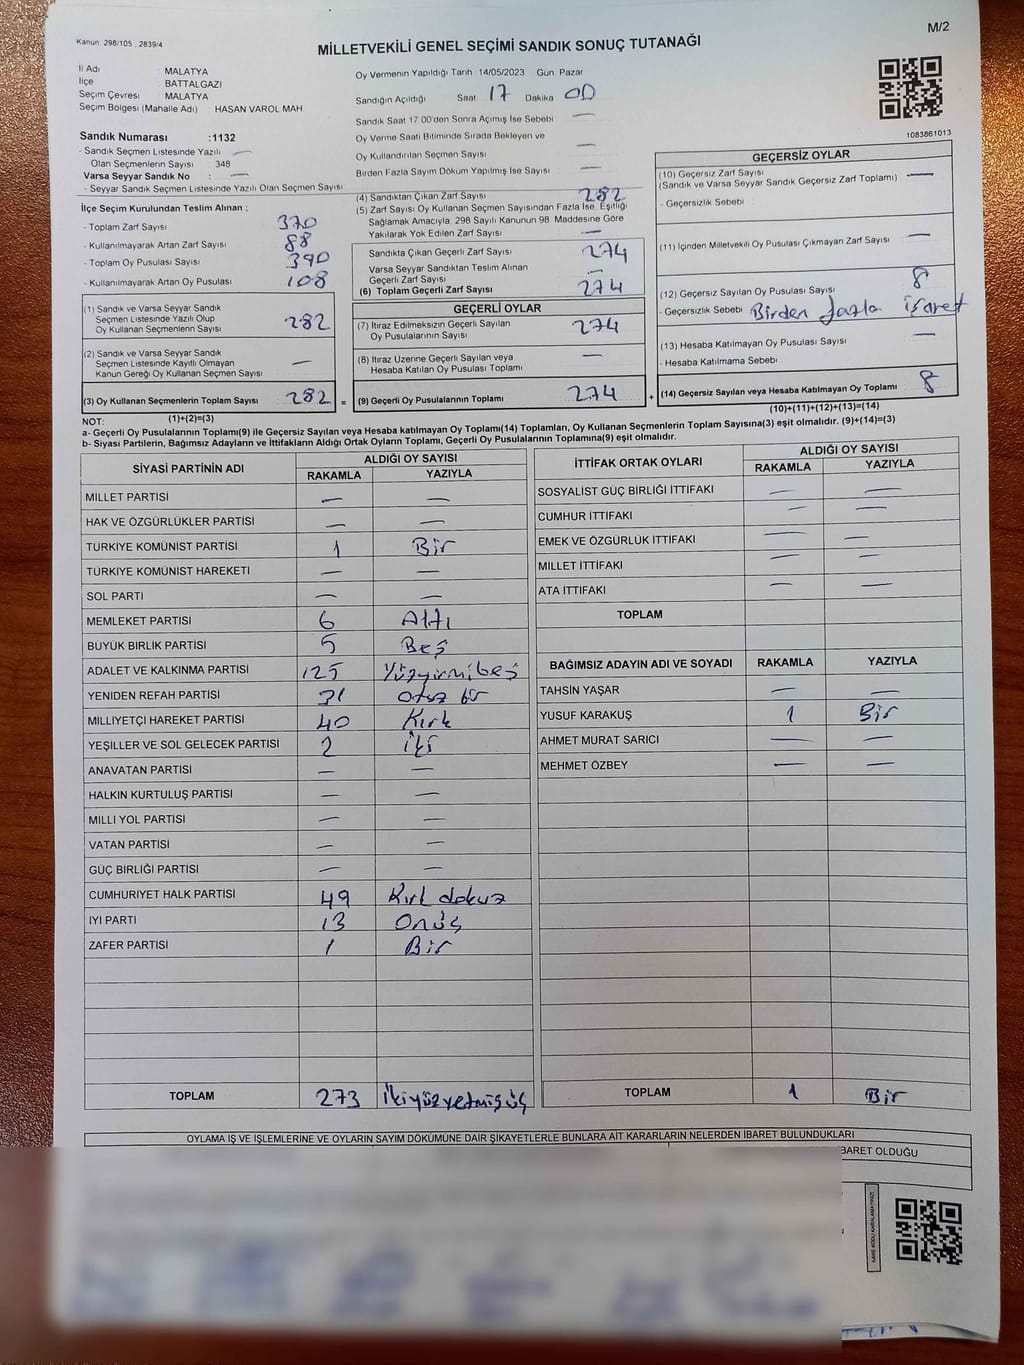 Kanun. 298/105 , 2839/4
M/2
MİLLETVEKİLİ GENEL SEÇİMİ SANDIK SONUÇ TUTANAĞI
İl Adı MALATYA
İlçe BATTALGAZİ
Seçim Çevresi MALATYA
Seçim Bölgesi (Mahalle Adı) HASAN VAROL MAH
Sandık Numarası :1132
- Sandık Seçmen Listesinde Yazılı —
Olan Seçmenlerin Sayısı 348
Varsa Seyyar Sandık No : —
- Seyyar Sandık Seçmen Listesinde Yazılı Olan Seçmen Sayısı
Oy Vermenin Yapıldığı Tarih 14/05/2023 Gün Pazar
Sandığın Açıldığı Saat 17 Dakika 00
Sandık Saat 17 00'den Sonra Açımış İse Sebebi —
Oy Verme Saati Bitiminde Sırada Bekleyen ve
Oy Kullandırılan Seçmen Sayısı —
Birden Fazla Sayım Döküm Yapılmış İse Sayısı —
1083861013
İlçe Seçim Kurulundan Teslim Alınan ;
- Toplam Zarf Sayısı 370
- Kullanılmayarak Artan Zarf Sayısı 88
- Toplam Oy Pusulası Sayısı 390
- Kullanılmayarak Artan Oy Pusulası 108
(1) Sandık ve Varsa Seyyar Sandık
Seçmen Listesinde Yazılı Olup
Oy Kullanan Seçmenlerin Sayısı 282
(2) Sandık ve Varsa Seyyar Sandık
Seçmen Listesinde Kayıtlı Olmayan
Kanun Gereği Oy Kullanan Seçmen Sayısı —
(3) Oy Kullanan Seçmenlerin Toplam Sayısı 282 =
(1)+(2)=(3)
(4) Sandıktan Çıkan Zarf Sayısı 282
(5) Zarf Sayısı Oy Kullanan Seçmen Sayısından Fazla İse, Eşitliği
Sağlamak Amacıyla, 298 Sayılı Kanunun 98. Maddesine Göre
Yakılarak Yok Edilen Zarf Sayısı —
Sandıkta Çıkan Geçerli Zarf Sayısı 274
Varsa Seyyar Sandıktan Teslim Alınan
Geçerli Zarf Sayısı —
(6) Toplam Geçerli Zarf Sayısı 274
GEÇERLİ OYLAR
(7) İtiraz Edilmeksizin Geçerli Sayılan
Oy Pusulalarının Sayısı 274
(8) İtiraz Üzerine Geçerli Sayılan veya
Hesaba Katılan Oy Pusulası Toplamı —
(9) Geçerli Oy Pusulalarının Toplamı 274 +
GEÇERSİZ OYLAR
(10) Geçersiz Zarf Sayısı —
(Sandık ve Varsa Seyyar Sandık Geçersiz Zarf Toplamı)
- Geçersizlik Sebebi
(11) İçinden Milletvekili Oy Pusulası Çıkmayan Zarf Sayısı —
(12) Geçersiz Sayılan Oy Pusulası Sayısı 8
- Geçersizlik Sebebi Birden fazla işaret
(13) Hesaba Katılmayan Oy Pusulası Sayısı —
- Hesaba Katılmama Sebebi
(14) Geçersiz Sayılan veya Hesaba Katılmayan Oy Toplamı 8
(10)+(11)+(12)+(13)=(14)
NOT:
a- Geçerli Oy Pusulalarının Toplamı(9) ile Geçersiz Sayılan veya Hesaba katılmayan Oy Toplamı(14) Toplamları, Oy Kullanan Seçmenlerin Toplam Sayısına(3) eşit olmalıdır. (9)+(14)=(3)
b- Siyasi Partilerin, Bağımsız Adayların ve İttifakların Aldığı Ortak Oyların Toplamı, Geçerli Oy Pusulalarının Toplamına(9) eşit olmalıdır.
SİYASİ PARTİNİN ADI ALDIĞI OY SAYISI
RAKAMLA YAZIYLA
MİLLET PARTİSİ — —
HAK VE ÖZGÜRLÜKLER PARTİSİ — —
TÜRKİYE KOMÜNİST PARTİSİ 1 Bir
TÜRKİYE KOMÜNİST HAREKETİ — —
SOL PARTİ — —
MEMLEKET PARTİSİ 6 Altı
BÜYÜK BİRLİK PARTİSİ 5 Beş
ADALET VE KALKINMA PARTİSİ 125 Yüzyirmibeş
YENİDEN REFAH PARTİSİ 31 Otuz bir
MİLLİYETÇİ HAREKET PARTİSİ 40 Kırk
YEŞİLLER VE SOL GELECEK PARTİSİ 2 İki
ANAVATAN PARTİSİ — —
HALKIN KURTULUŞ PARTİSİ — —
MİLLİ YOL PARTİSİ — —
VATAN PARTİSİ — —
GÜÇ BİRLİĞİ PARTİSİ — —
CUMHURİYET HALK PARTİSİ 49 Kırk dokuz
İYİ PARTİ 13 Onüç
ZAFER PARTİSİ 1 Bir
TOPLAM 273 İkiyüzyetmişüç
İTTİFAK ORTAK OYLARI ALDIĞI OY SAYISI
RAKAMLA YAZIYLA
SOSYALİST GÜÇ BİRLİĞİ İTTİFAKI — —
CUMHUR İTTİFAKI — —
EMEK VE ÖZGÜRLÜK İTTİFAKI — —
MİLLET İTTİFAKI — —
ATA İTTİFAKI — —
TOPLAM
BAĞIMSIZ ADAYIN ADI VE SOYADI RAKAMLA YAZIYLA
TAHSİN YAŞAR — —
YUSUF KARAKUŞ 1 Bir
AHMET MURAT SARICI — —
MEHMET ÖZBEY — —
TOPLAM 1 Bir
OYLAMA İŞ VE İŞLEMLERİNE VE OYLARIN SAYIM DÖKÜMÜNE DAİR ŞİKAYETLERLE BUNLARA AİT KARARLARIN NELERDEN İBARET BULUNDUKLARI
BARET OLDUĞU